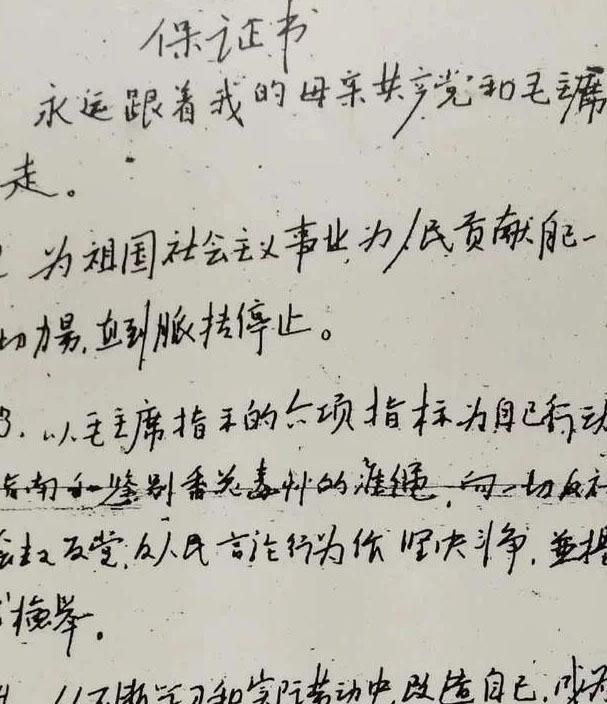 保证书
永远跟着我的母亲共产党和毛主席
走。
为祖国社会主义事业,为人民贡献自己一
切力量,直到脉搏停止。
3.以毛主席指示的六项指标为自己行动
指南和鉴别香花毒草的准绳,向一切反社
会主义反党,反人民言论行为作坚决斗争,並揭
检举。
4.从不断学习和实际劳动中,改造自己,成为